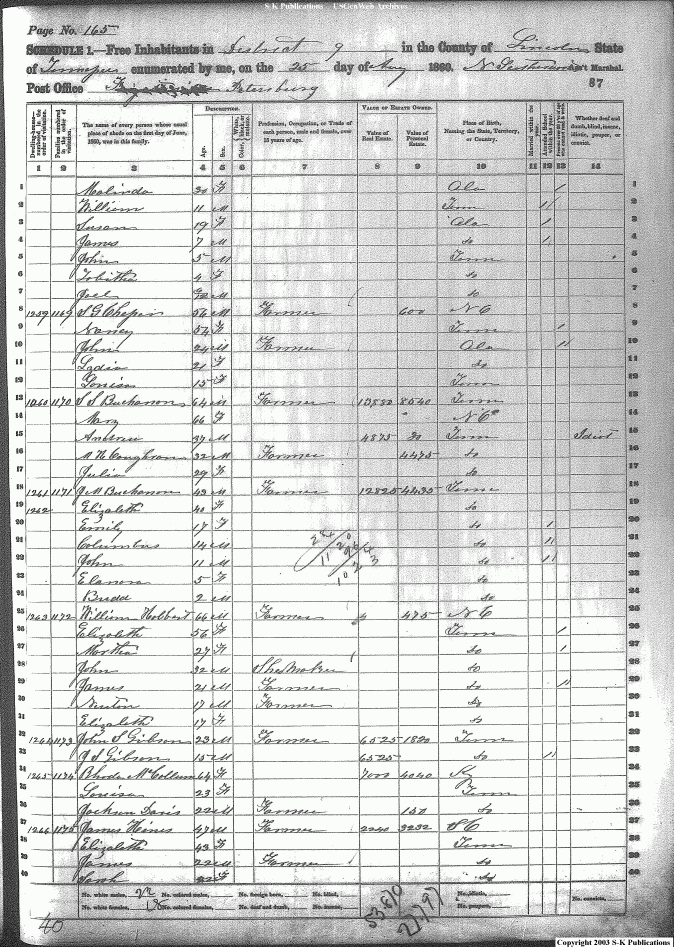 S-K Publications USGenWeb Archives
Page No. 165
SCHEDULE 1.—Free Inhabitants in District 9 in the County of Lincoln State
of Tennessee enumerated by me, on the 25 day of Aug 1860. Ass't Marshal.
Post Office Petersburg 87
Dwelling-houses numbered in the order of visitation.
Families numbered in the order of visitation.
The name of every person whose usual place of abode on the first day of June, 1860, was in this family.
DESCRIPTION.
Age.
Sex.
Color.
Profession, Occupation, or Trade of each person, male and female, over 15 years of age.
VALUE OF ESTATE OWNED.
Value of Real Estate.
Value of Personal Estate.
Place of Birth, Naming the State, Territory, or Country.
Married within the year.
Attended School within the year.
Whether deaf and dumb, blind, insane, idiotic, pauper, or convict.
1 2 3 4 5 6 7 8 9 10 11 12 13 14
1 Malinda 30 F Ala / 1
2 William 11 M Tenn 2
3 Susan 19 F Ala 3
4 James 7 M do 4
5 John 5 M Tenn 5
6 Tobitha 4 F do 6
7 Joel M do 7
8 1259 1169 S G 56 M Farmer 600 N C 8
9 Nancy 54 F Tenn / 9
10 John 24 M Farmer Ala 10
11 Lydia 21 F do 11
12 Louisa 15 F Tenn 12
13 1260 1170 S S Buchanon 64 M Farmer 8540 Tenn 13
14 Mary 66 F N C 14
15 Andrew 37 M 4875 Tenn Idiot 15
16 32 M Farmer 4475 do 16
17 Julia 29 F do 17
18 1261 1171 J M Buchanon 43 M Farmer 12825 4435 Tenn 18
19 1262 Elizabeth 40 F do 19
20 Emily 17 F do 20
21 Columbus 14 M do 21
22 John 11 M do 22
23 Elanora 5 F do 23
24 Budd 2 M do 24
25 1263 1172 William Holbert 66 M Farmer 475 N C 25
26 Elizabeth 56 F Tenn / 26
27 Martha 27 F do / 27
28 John 32 M Shoe Maker do 28
29 James 21 M Farmer do 29
30 Newton 17 M Farmer do 30
31 Elizabeth 17 F do 31
32 1264 1173 John S Gibson 23 M Farmer 6525 1820 Tenn 32
33 J S Gibson 15 M 6525 do 33
34 1265 1174 Rhoda McCollum 64 F 7000 4040 Ky 34
35 Louisa 23 F Tenn 35
36 Jackson Davis 22 M Farmer 150 do 36
37 1266 1175 James Hines 47 M Farmer 2240 3232 S C 37
38 Elizabeth 43 F Tenn 38
39 James 22 M Farmer do 39
40 Sarah 22 F do 40
No. white males, 22 No. colored males, No. foreign born, No. blind, No. idiotic, No. convicts,
No. white females, 18 No. colored females, No. deaf and dumb, No. insane, No. paupers,
53870 27797
40
Copyright 2003 S-K Publications